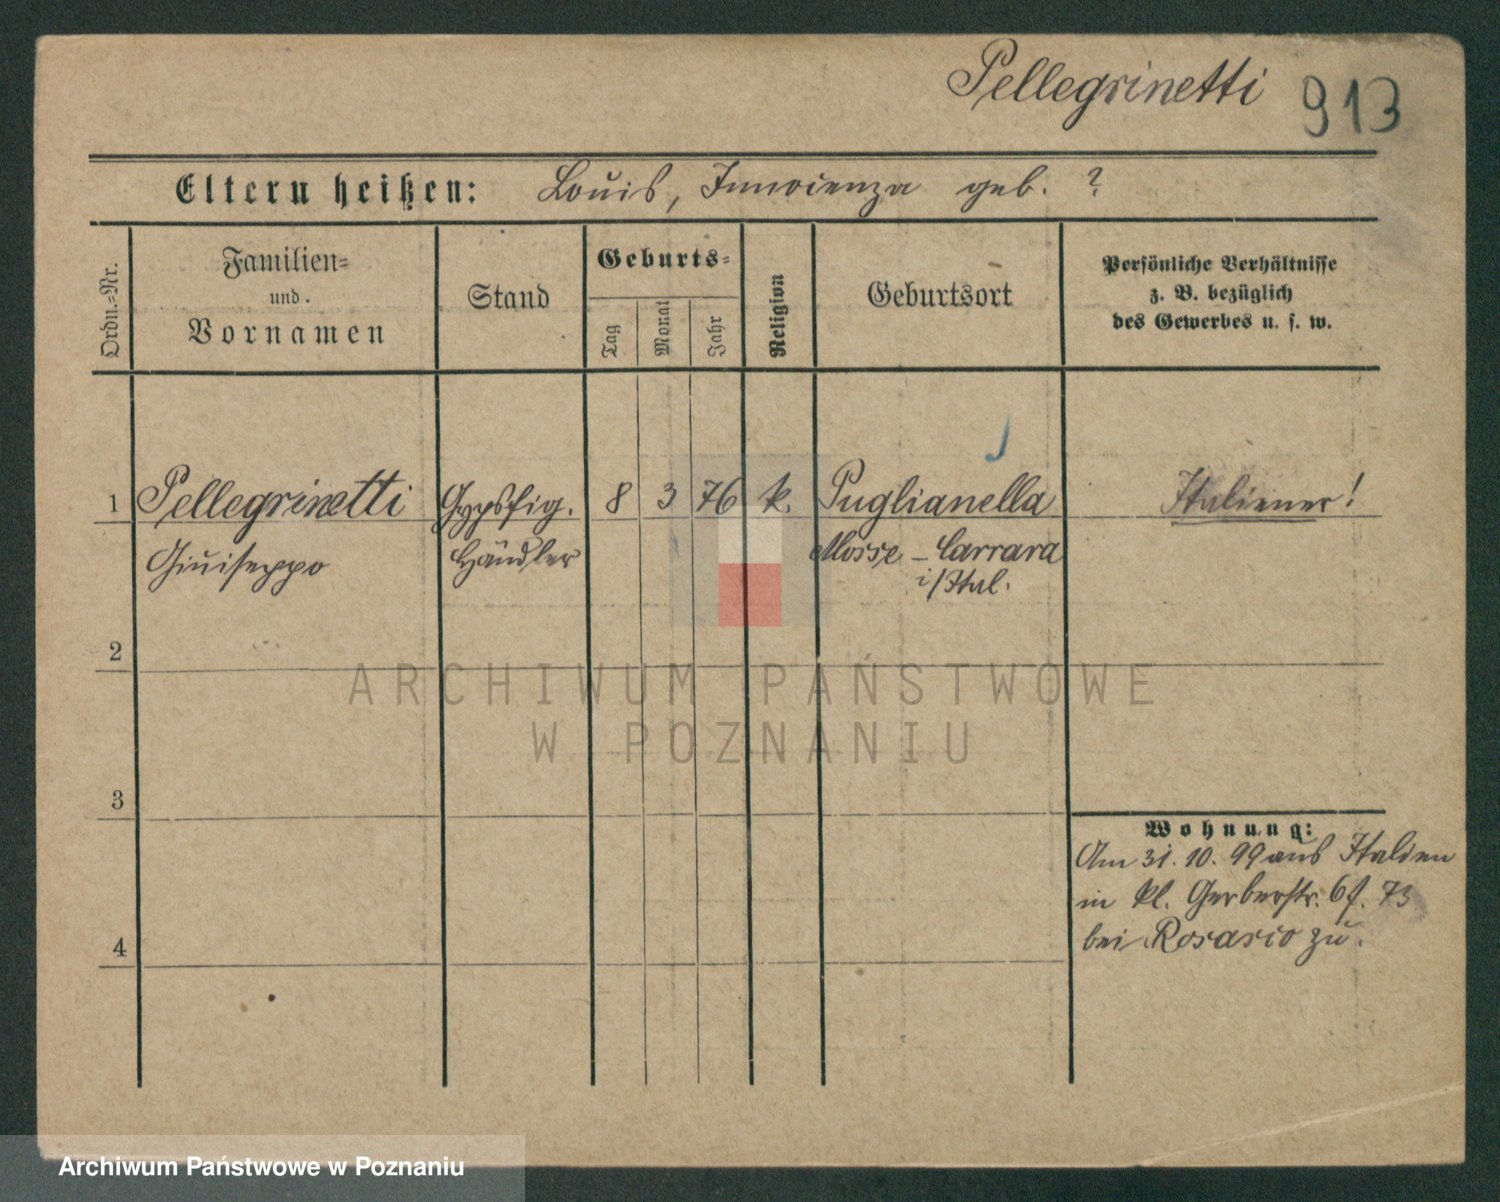 Pellegrinetti 913
Eltern heißen: Louis, Innocenza geb. ?
Ordn.=Nr.
Familien=
und
Vornamen
Stand
Geburts=
Tag
Monat
Jahr
Religion
Geburtsort
Persönliche Verhältnisse
z. B. bezüglich
des Gewerbes u. s. w.
1 Pellegrinetti Gypsfig. 8 3 76 k. Puglianella Italiener!
Giuiseppo Händler Mosse - Carrara
i/Ital.
2
ARCHIWUM PAŃSTWOWE
W POZNANIU
3
Wohnung:
Am 31. 10. 99 aus Italien
in kl. Gerberstr. 6 f. 73
bei Rosario zu.
4
Archiwum Państwowe w Poznaniu